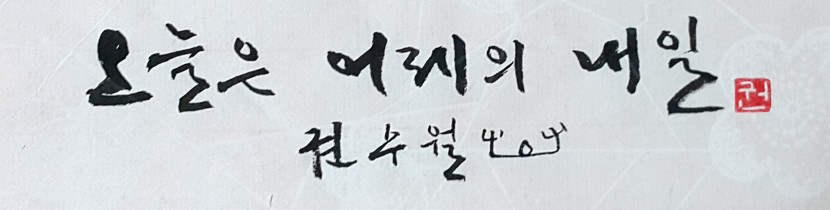 오늘은 어제의 내일
권수월